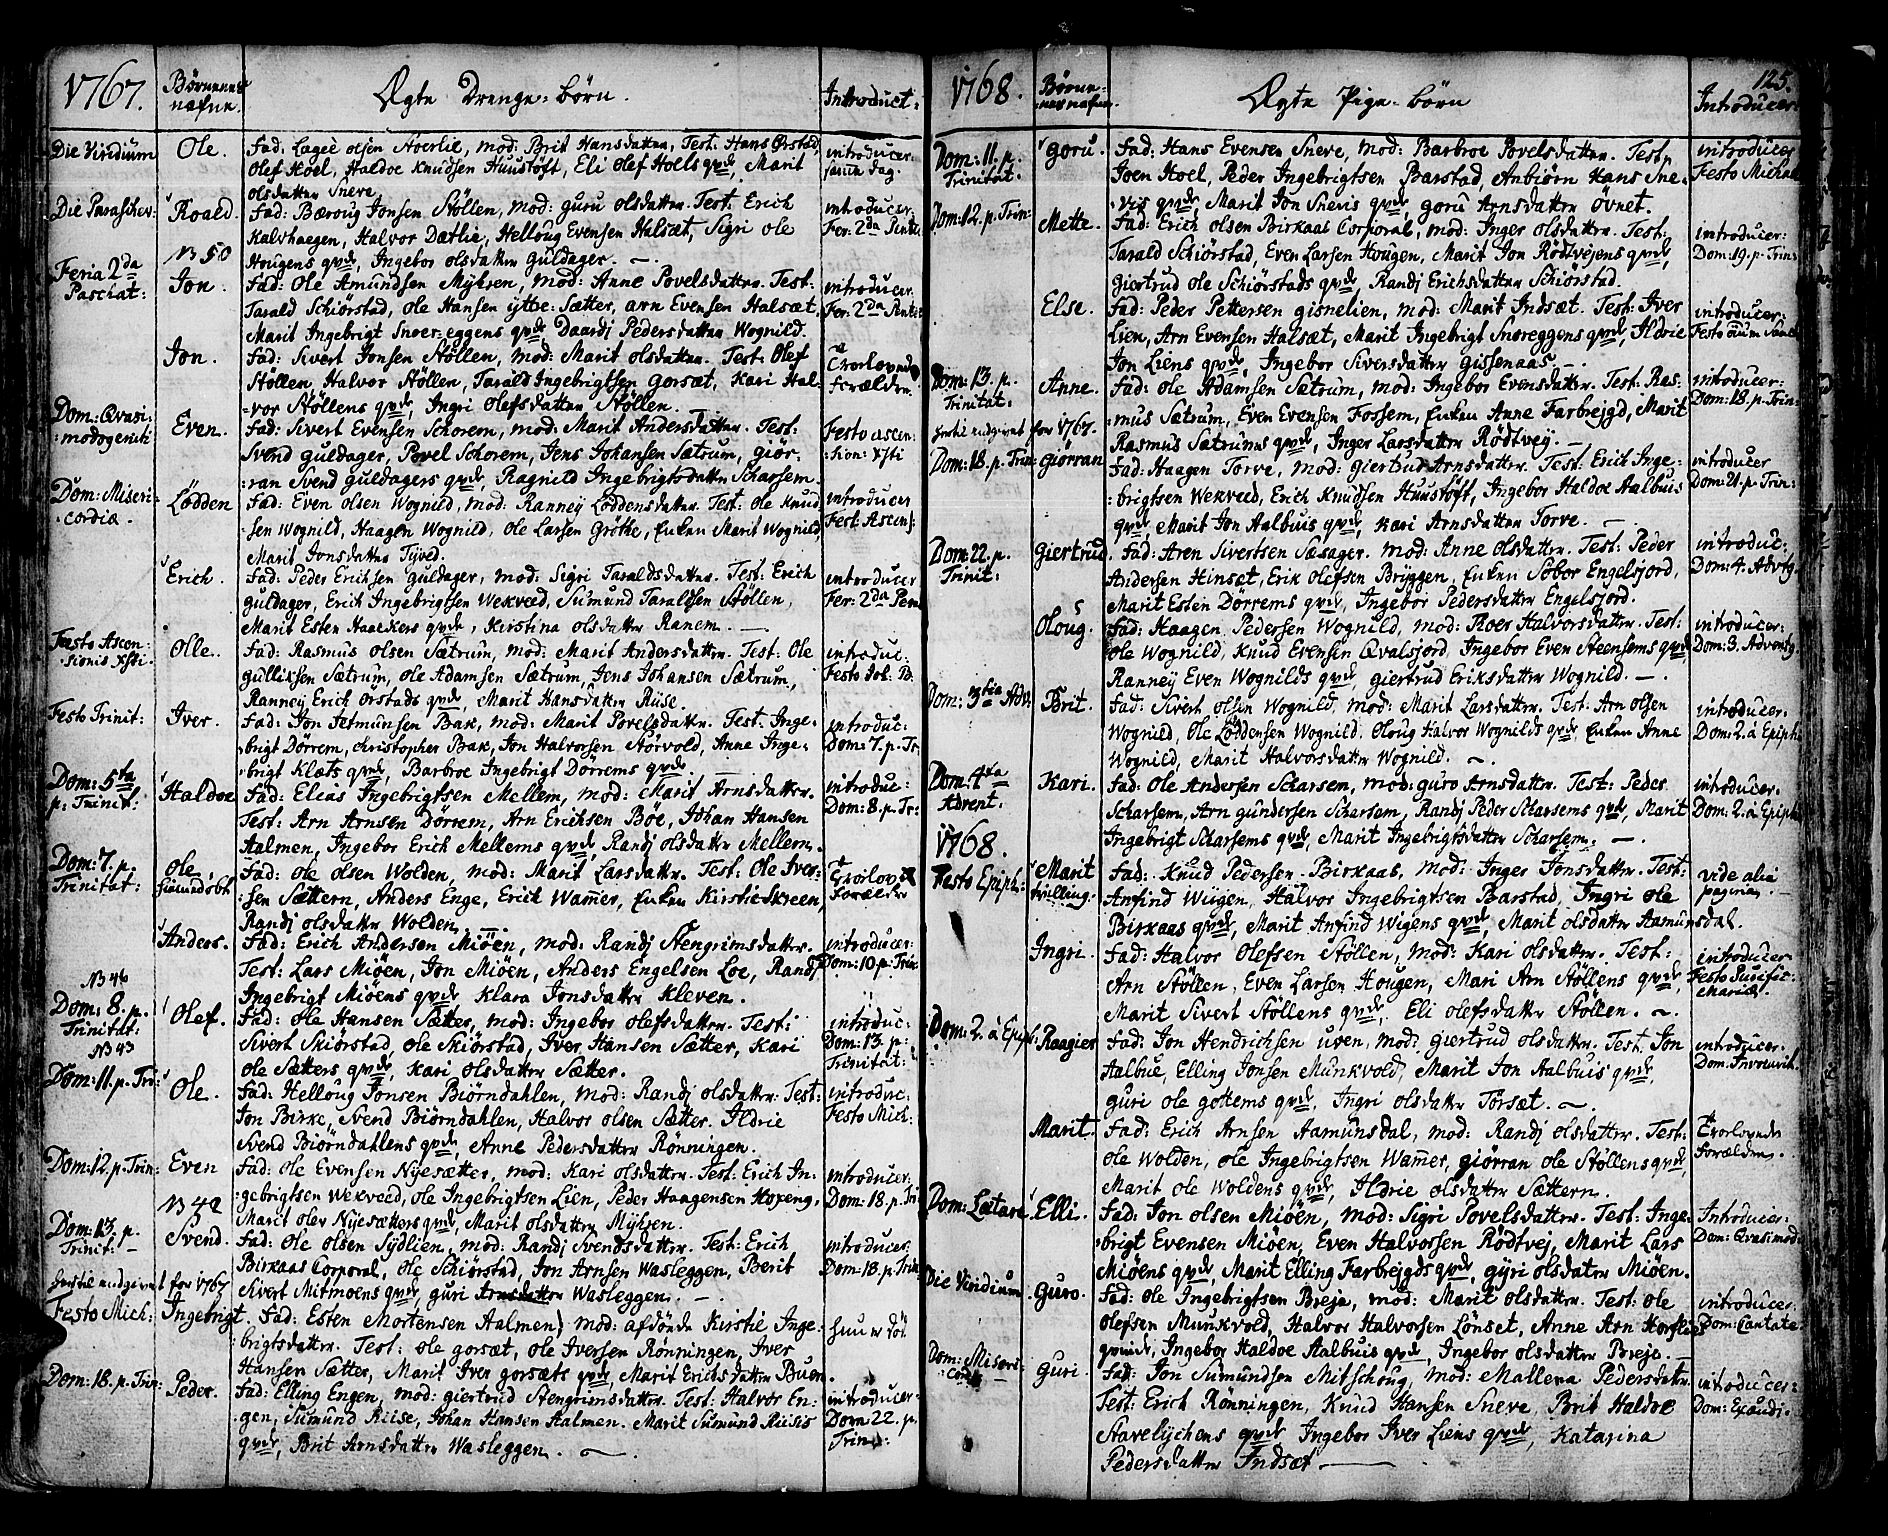 1767.
Børnenes nafne.
Ægte Drenge-børn.
Introduct:
Die Viridium
Ole.
Fad: Lage olsen Stoerlie, mod: Brit Hansdatter, Test: Hans Ørstad,
Olef Hoel, Haldoe Knudsen Huustøft, Eli Olef Holls qvde, Marit
olsdatter Sneve
introducer
Die Paraschev:
Roald.
Fad: Bæroug Jonsen Støllen, mod: guru olsdattr. Test: Erich
Kalvhaegen, Halvor Dætlie, Helloug Evensen Halsæt, Sigri ole
Hougens qvde, Ingebor olsdatter Guldager. —
introducer
Fer: 2da Pinte
N 50
Feria 2da
Paschat:
Jon.
Fad: Ole Amundsen Mÿhren, mod: Anne Povelsdattr. Test:
Tarald Schiørstad, ole Hansen ytte-Sætter, arn Evensen Halsæt,
Marit Ingebrigt Snoer-eggens qvde Daardj Pedersdatter Wognild.
introducer
Fer: 2da Pinte
Jon.
Fad: Sivert Jonsen Støllen, mod: Marit olsdatter. Test: Olef
Støllen, Halvor Støllen, Tarald Ingebrigtsen gorsæt, Kari Hal-
-vor Støllens qvde, Ingri Olefsdatter Støllen.
Trorlovede
Forældre.
Dom: Qvasi:
:modogeniti
Even.
Fad: Sivert Evensen Schorem, mod: Marit Andersdatter. Test:
Svend guldager, Povel Schorem, Jens Johansen Sætrum, giør-
ran Svend Guldagers qvde, Ragnild Ingebrigtsdatter Scharsem.
Festo ascen:
:sion: Xsti
Dom: Miseri-
cordiæ.
Lødden
Fad: Even olsen Wognild, mod: Ranneÿ Løddensdatter. Test: Ole Knud
sen Wognild, Haagen Wognild, ole Larsen Grøtte, Enken Marit Wognild,
Marit Jonsdatter Tÿved.
introducer
Fest: Ascens:
Erich.
Fad: Peder Erichsen guldager, mod: Sigri Taraldsdatter. Test: Erich
guldager, Erich Ingebrigtsen Wekveed, Sumund Taraldsen Støllen,
Marit Esten Haarkers qvde, Kirstina olsdatter Ranem. —
introducer
Fer: 2da Pen
Festo Ascen-
sionis Xsti
Olle.
Fad: Rasmus olsen Sætrum, mod: Marit Andersdatter. Test: Ole
gullixsen Sætrum, ole Adamsen Sætrum, Jens Johansen Sætrum,
Ranneÿ Erich Orstads qvde, Marit Hansdatter Ruse.
introduc:
Festo Joh: B.
Festo Trinit:
Iver.
Fad: Jon Setmunsen Bak, mod: Marit Povelsdattr. Test: Inge-
brigt Dørrem, Christopher Bak, Jon Halvorsen Størvold, Anne Inge-
brigt Klæts qvde, Barbroe Ingebrigt Dørrems qvde
introduc:
Dom: 7. p: Tr:
Dom: 5ta
p: Trinit:
Haldoe
Fad: Elias Ingebrigtsen Mellem, mod: Marit Arnsdatter.
Test: Arn Arnsen Dørrem, Arn Erichsen Bøe, Johan Hansen
Aalmen, Ingebor Erich Mellems qvde, Randj olsdatter Mellem.
introduc:
Dom: 8. p: Tr:
Dom: 7. p.
Trinitat:
Ole
Fad: ole olsen Wolden, mod: Marit Larsdatter. Test: Ole Iver-
sen Sættern, Anders Enge, Erich Wammer, Enken Kirstie Skreen,
Randj olsdatter Wolden. —
Forælder
Anders.
Fad: Erich Andersen Miöen, mod: Randj Stengrimsdatter.
Test: Lars Miöen, Jon Miöen, Anders Engelsen Loe, Randj
Ingebrigt Miöens qvde Klara Jonsdattr Kleven.
introducer:
Dom: 10. p: Trin
N 46
Dom: 8. p.
Trinitat:
Olef.
Fad: ole Hansen Sætter, mod: Ingebor olefsdatter. Test:
Sivert Skiörstad, ole Skiörstad, Iver Hansen Sætter, Kari
ole Sætters qvde, Kari olsdatter Sætter.
introduc:
Dom: 13. p:
Trinitat:
N 43
Dom: 11. p. Tri:
Ole.
Fad: Helloug Jonsen Biørndahlen, mod: Randj olsdatter. Test:
Jon Birke, Svend Biørndahlen, Halvor olsen Sætter. Ildrie
Svend Biörndahlens qvde, Anne Pedersdatter Rönningen.
introduc:
Festo Mich:
Dom: 12. p. Trin:
Even
Fad: Ole Evensen Nÿesætter, mod: Kari olsdatter. Test: Erich In-
gebrigtsen Wekveed, ole Ingebrigtsen Lien, Peder Haagensen Hoxeng,
Marit olev Nÿesætters qvde, Marit olsdatter Mÿhren.
introducer:
Dom: 18. p. Tri
N 42
Dom: 13. p.
Trinit: —
Svend.
Fad: Ole olsen Sÿdlien, mod: Randj Svendsdatter. Test: Erich
Birkaas Corporal, ole Schiørstad, Jon Arnsen Wasleggen, Berit
Sivert Mitmoens qvde, guri Wasleggen. —
introducer:
Dom: 18. p. Trin
hertil indgivet for 1767
Festo Mich:
Ingebrigt.
Fad: Esten Mortensen Aalmen, mod: afdøde Kirstie Inge-
brigtsdatter. Test: ole gorsæt, ole Iversen Rönningen, Iver
Hansen Sætter, Marit Iver gorsæts qvde, Marit Erichsdatter Buen.
hun er død
Dom: 18. p. Trin:
Peder.
Fad: Elling Engen, mod: giertrud Stengrimsdatter. Test: Halvor En-
gen, Sumund Riise, Johan Hansen Aalmen. Marit Sumund Riises
qvde, Brit Arnsdatter Wasleggen. —
introducer
Dom 22. p.
Trin:
1768.
Børne-
nes nafne.
Ægte Pige-børn
125.
Introducer:
Dom: 11. p.
Trinitat:
goru.
Fad: Hans Evensen Sneve, mod: Barbroe Povelsdatter. Test,
Joen Hoel, Peder Ingebrigtsen Barstad, Anbiörn Hans Sne-
vis qvde, Marit Jon Snevis qvde, goru Arnsdatter Øvnet.
introducer
Festo Michae
Dom: 12. p. Trin:
Mette.
Fad: Erich olsen Birkaas Corporal, mod: Inger olsdatter. Test:
Tarald Schiörstad, Even Larsen Hougen, Marit Jon Rödtvejens qvde,
Giertrud ole Schiörstads qvde, Randj Erichsdatter Schiörstad.
introducer:
Dom: 19. p. Trin:
Else.
Fad: Peder Pettersen gisnelien, mod: Marit Indsæt. Test: Iver
Lien, Arn Evensen Halsæt, Marit Ingebrigt Snoreggens qvde, Ildrie
Jon Liens qvde, Ingebor Siversdatter Gissenaas. —
introducer:
Festo omnium Sanct
Dom: 13. p.
Trinitat:
Anne.
Fad: Ole Adamsen Sætrum, mod: Ingebor Evensdatter. Test: Ras-
mus Sætrum, Even Evensen Fossem, Enken Anne Farbrejgd, Marit
Rasmus Sætrums qvde, Inger Larsdatter Rödtvej. —
introducer:
Dom: 18. p. Trin:
hertil indgivet for 1767.
Dom: 18. p. Trin:
Giörran
Fad: Haagen Torve, mod: giertrud Arnsdatter. Test: Erich Inge-
brigtsen Wekveed, Erich Knudsen Huustöft, Ingebor Haldoe Aalbuis
qvde, Marit Jon Aalbuis qvde, Kari Arnsdatter Torve. —
introducer
Dom: 21. p. Trin:
Dom: 22. p.
Trinit:
Giertrud.
Fad: Aren Sivertsen Sæsager. mod: Anne olsdatter. Test: Peder
Andersen Hinsæt, Erik Olefsen Brÿggen, Enken Sobor Engelsjord,
Marit Esten Dörrems qvde, Ingebor Pedersdatter Engelsjord.
introduc:
Dom: 4. Advtg.
Oloug.
Fad: Haagen Pedersen Wognild, mod: Roer Halvorsdatter. Test:
ole Wognild, Knud Evensen Qvalsjord, Ingebor Even Steensems qvde
Ranneÿ Even Wognilds qvde, giertrud Eriksdatter Wognild. —
introducer:
Dom: 3. Adventg
Dom: 3tia Adv:
Brit.
Fad: Sivert olsen Wognild, mod: Marit Larsdatter. Test: Arn olsen
Wognild, Ole Löddensen Wognild. Oloug Halvor Wognilds qvde Enken Anne
Wognild, Marit Halvorsdatter Wognild. —
introducer:
Dom: 2. a Epiph:
Dom: 4ta
Advent:
Kari.
Fad: Ole Andersen Scharsem, mod: guro Arnsdatter. Test: Peder
Scharsem, Arn gundersen Scharsem, Randj Peder Scharsems qvde, Marit
Ingebrigt Scharsems qvde, Marit Ingebrigtsdatter Scharsem. —
introducer:
Dom: 2. a Epiph
1768.
Festo Epiph:
Marit
tvilling.
Fad: Knud Pedersen Birkaas, mod: Inger Jonsdatter. Test:
Anfind Wiigen, Halvor Ingebrigtsen Barstad, Ingri ole
Birkaas qvde, Marit Anfind Wigens qvde, Marit olsdatter Aamunsdal.
vide alia
pagina
Ingri.
Fad: Halvor Olefsen Stöllen, mod: Kari olsdatter. Test:
Arn Stöllen, Even Larsen Hougen, Mari Arn Stöllens qvde,
Marit Sivert Stöllens qvde, Eli olefsdatter Stöllen. —
introducer
Festo Purific:
Mariæ.
Dom: 2. a Epiph:
Raagier
Fad: Jon Hendrichsen uven, mod: giertrud olsdatter. Test: Jon
Aalbue, Elling Jonsen Munkvold, Marit Jon Aalbuis qvde,
guri ole gottems qvde, Ingri olsdatter Torsæt. —
introducer.
Dom: Invocavit
Marit.
Fad: Erich Arnsen Aamunsdal, mod: Randj olsdatter. Test:
ole Wolden, ole Ingebrigtsen Wammer, giörran ole Stöllens qvde,
Marit ole Woldens qvde, Ildrie olsdatter Sættern.
Trorlovede
Forældre.
Dom: Lætare
Elli.
Fad: Jon olsen Miöen, mod: Sigri Povelsdatter. Test: Inge-
brigt Evensen Miöen, Even Halvorsen Rödtvej, Marit Lars
Miöens qvde, Marit Elling Farbrejgds qvde, gÿri olsdatter Miöen.
Introducer:
Dom: Qvasimod:
Die Viridium
Guro.
Fad: ole Ingebrigtsen Breja, mod: Marit olsdatter. Test: ole
olefsen Munkvold, Halvor Halvorsen Lönset, Anne Arn
qvinde, Ingebor Haldoe Aalbuis qvde, Ingebor olsdatter Breje. —
introducer:
Dom: Cantate
Dom: Miseri-
Cord:
Guri.
Fad: Jon Sumundsen Mitschoug, mod: Mallena Pedersdatter.
Test: Erich Rönningen, Knud Hansen Sneve, Brit Haldoe
Stavelÿchens qvde Ingebor Iver Liens qvde, Katarina
Pedersdatter Indsæt —
introducer:
Dom: Exaudi.